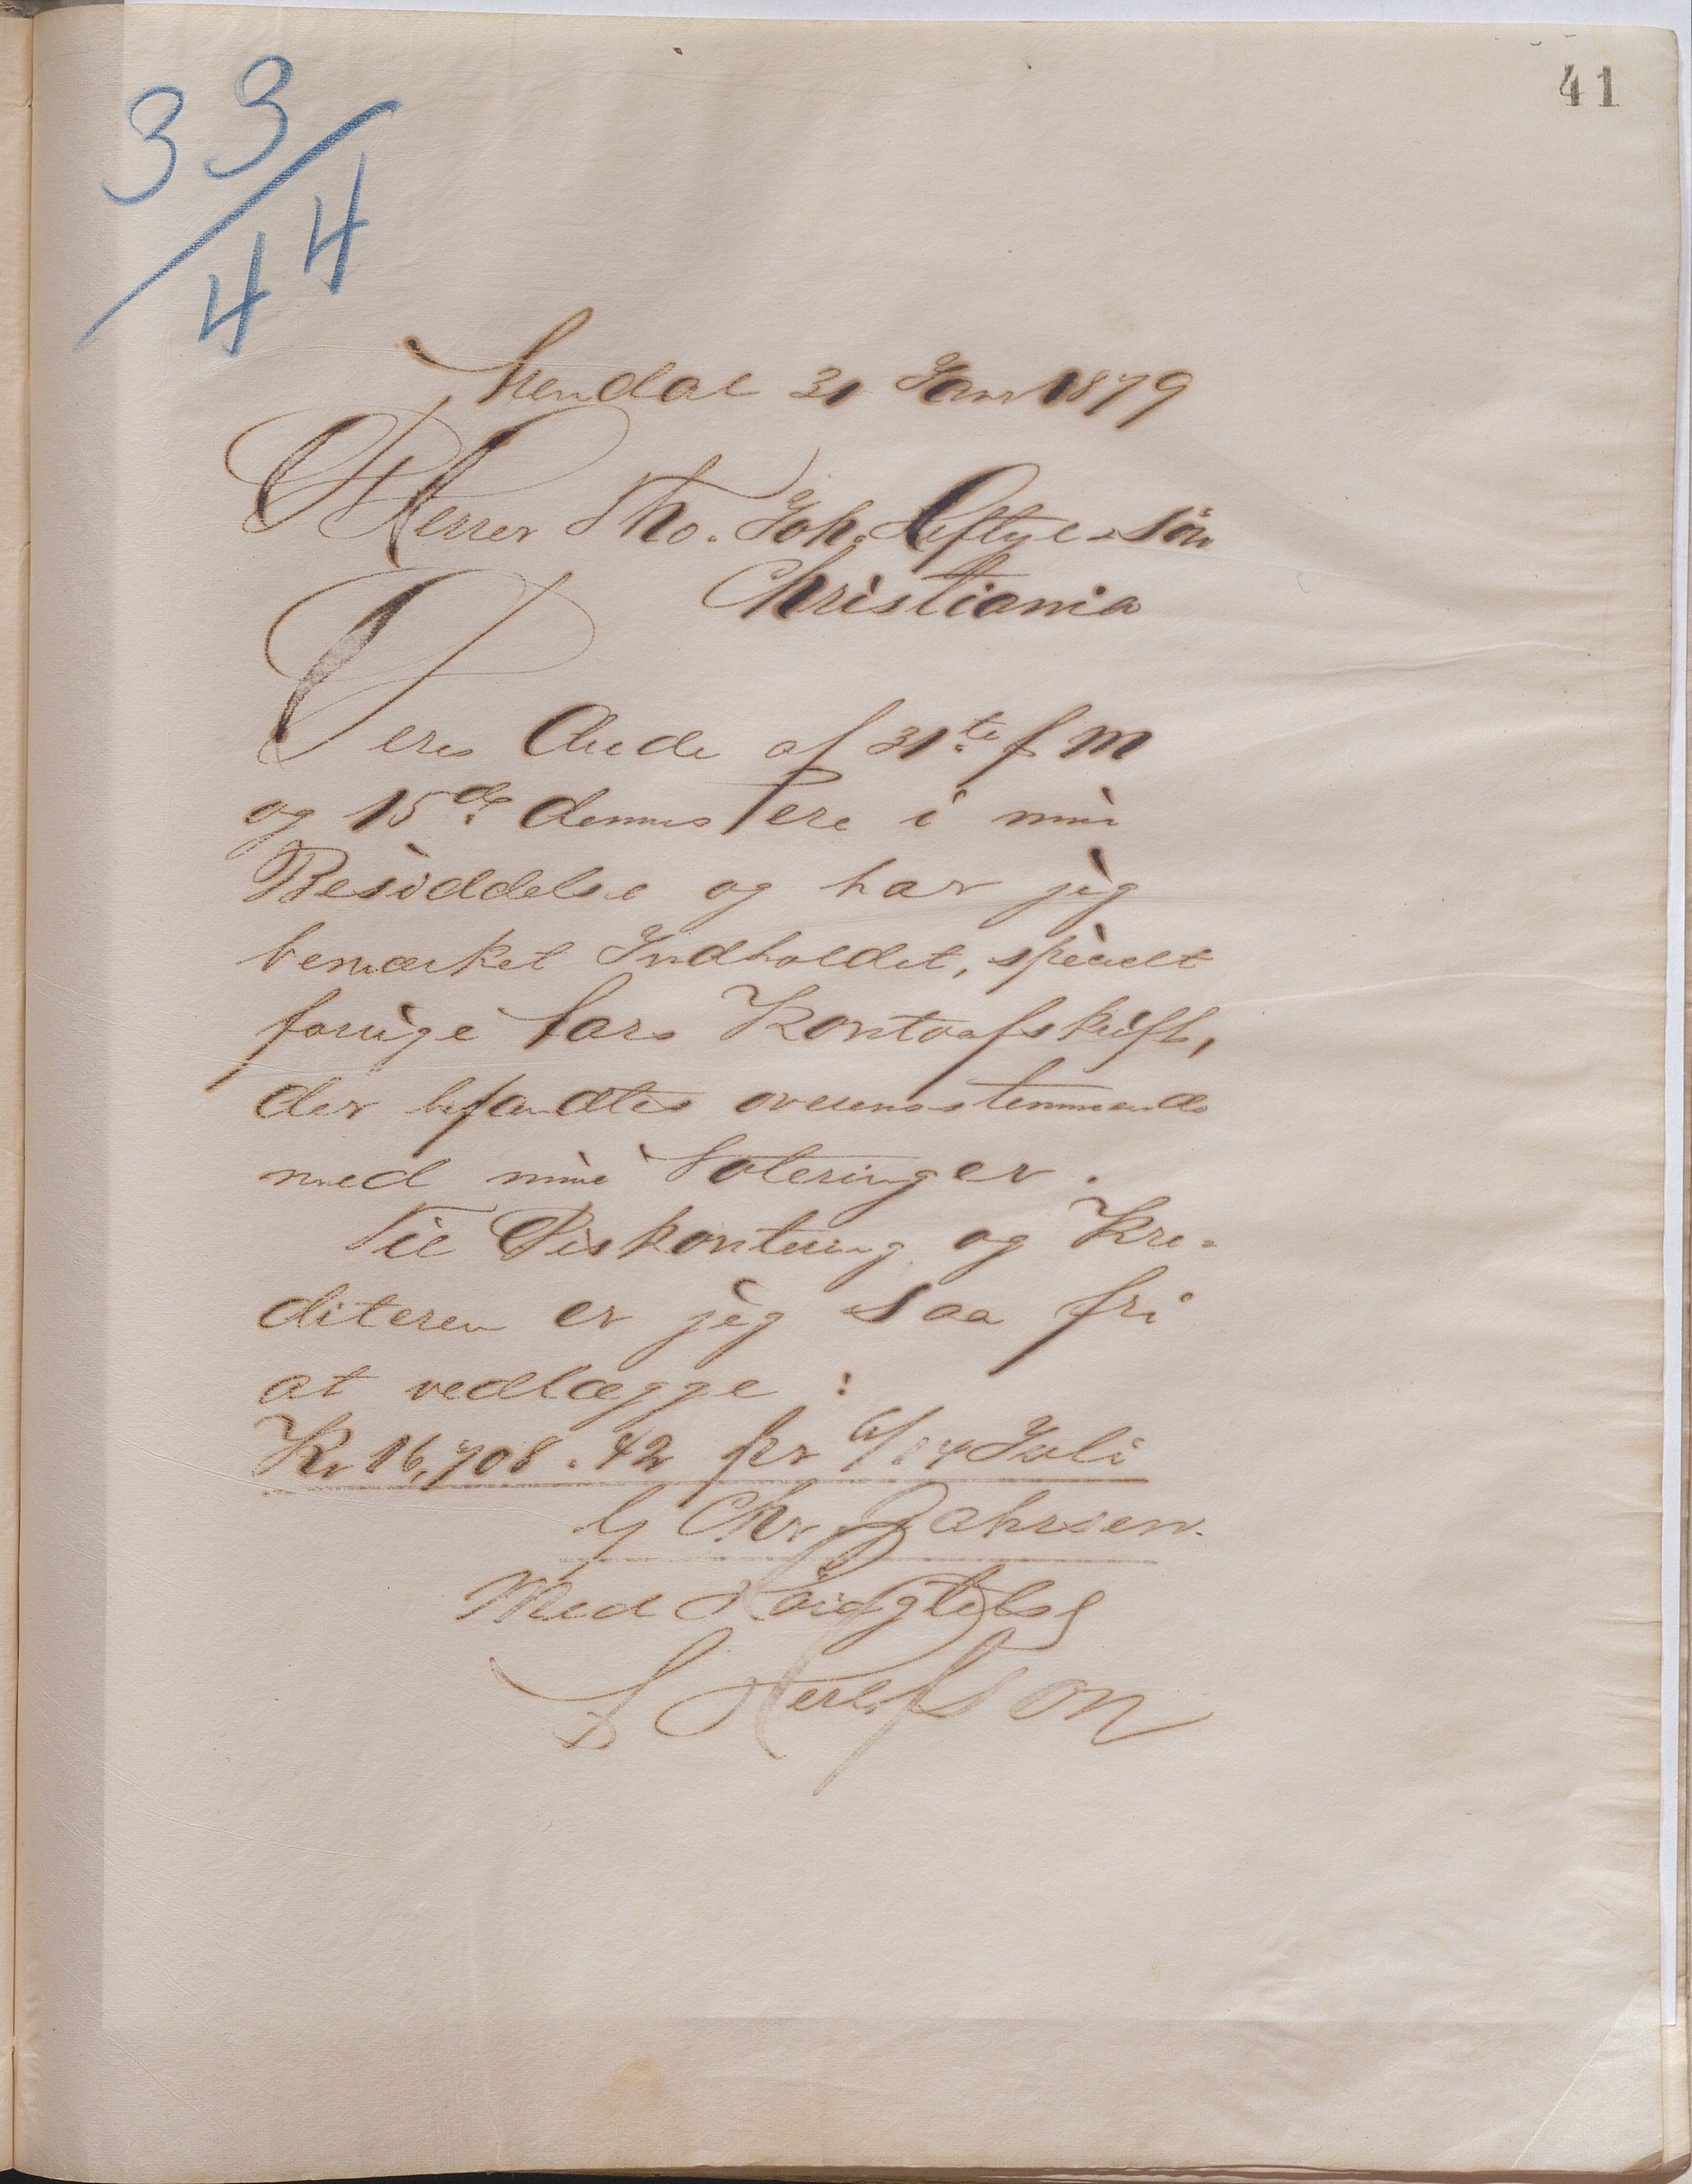 41
33/44
Arendal 31 Jan 1879
Herrer Tho. Joh. Heftye & Søn
Christiania
Deres Ærede af 31te f M
og 15de dennes ere i min
Besiddelse og har jeg
bemærket Indholdet, specielt
forrige Aars Kontoafskrift,
der befandtes overensstemmende
med mine Noteringer.
Til Diskontering og Kre-
diteren er jeg saa fri
at vedlægge :
Kr 16,708.42 pr 14 Juli
Chr.
Med Høiagtelse
Herlofson